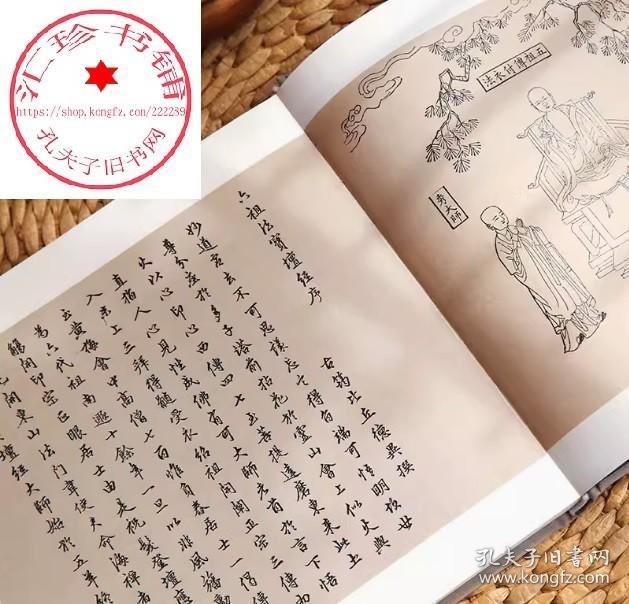 汇珍书铺
https://shop.kongfz.com/222289
孔夫子旧书网
五祖傳付衣法
秀大師
六祖法寶壇經序
古筠比丘德異撰
妙道虛玄不可思議忘言得旨端可悟明故世
尊分座於多子塔前拈花於靈山會上似火與
火以心印心西傳四七至菩提達磨東來此土
直指人心見性成佛有可大師者首於言下悟
入末上三拜得髓受衣紹祖開闡正宗三傳而
至黃梅會中高僧七百惟負舂居士一偈傳
為六代祖南遯十餘年一旦以非風旛動
觸開印宗正眼居士由是祝髮登壇應
記開東山法門韋使君命海禪者
壇經大師始於五羊終
孔夫子旧书网
www.kongfz.com